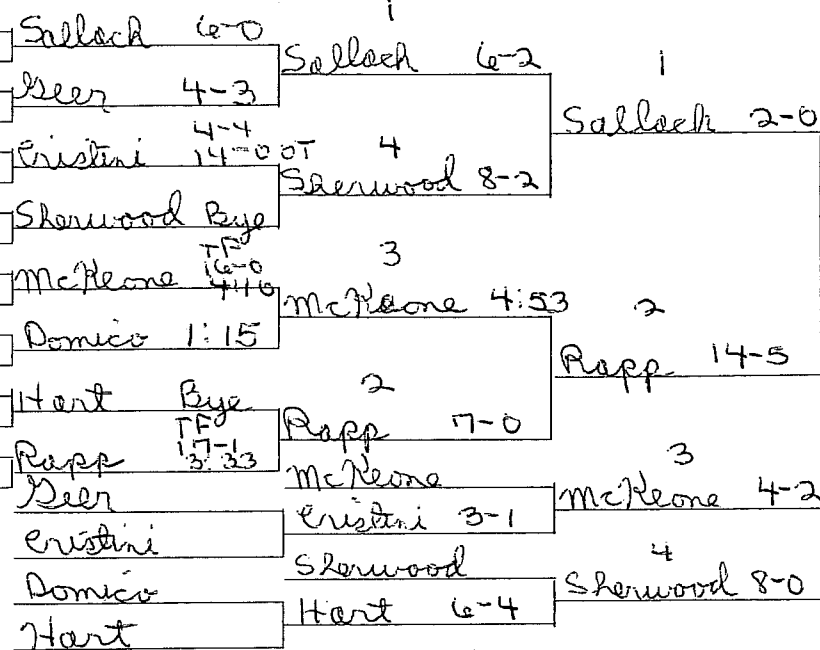 Sallach 6-0
Geer 4-3
4-4
Cristini 14-0 OT
Sherwood Bye
TF
16-0
McKeone 4:10
Domico 1:15
Hart Bye
TF
17-1
Rapp 3:33
Geer
Cristini
Domico
Hart
1
Sallach 6-2
4
Sherwood 8-2
3
McKeone 4:53
2
Rapp 7-0
McKeone
Cristini 3-1
Sherwood
Hart 6-4
1
Sallach 2-0
2
Rapp 14-5
3
McKeone 4-2
4
Sherwood 8-0